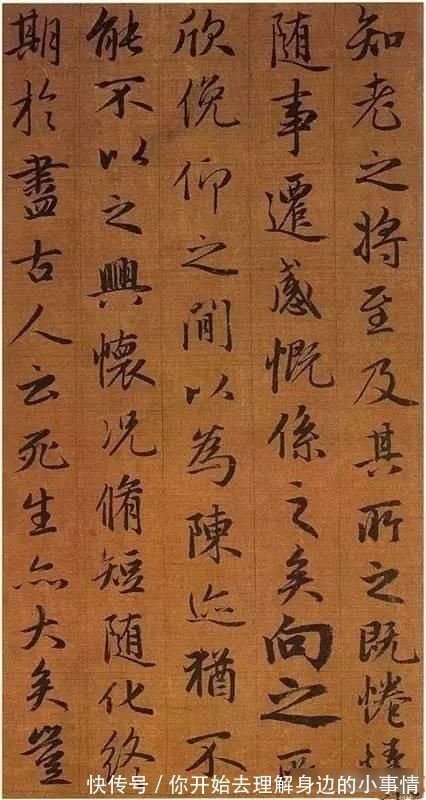 知老之將至及其所之既惓情
随事遷感慨係之矣向之所
欣俛仰之間以為陳迹猶不
能不以之興懷况脩短随化終
期於盡古人云死生亦大矣豈
快传号/你开始去理解身边的小事情